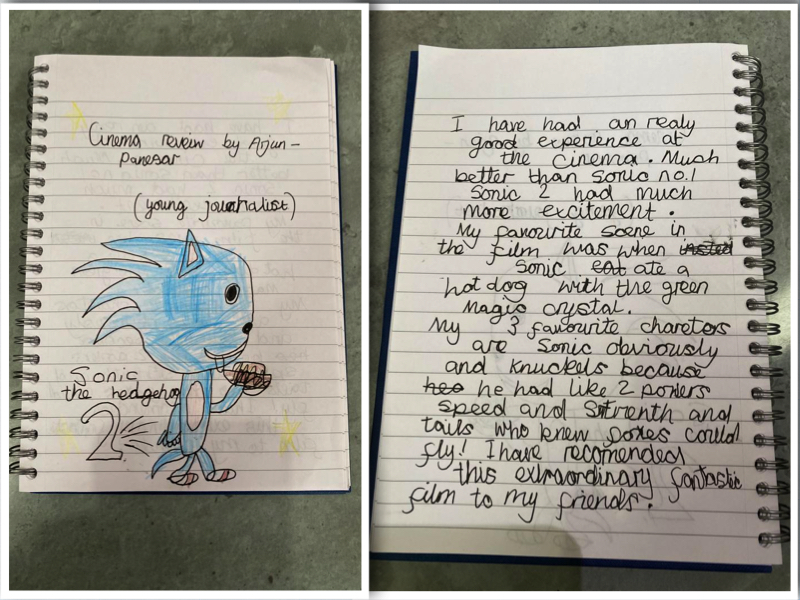 Cinema review by Arjun -
Panesar
(young journalist)
Sonic
the hedgehog
2
I have had an realy
good experience at
the cinema. Much
better than sonic no.1
Sonic 2 had much
more excitement.
My favourite scene in
the film was when insted
Sonic eat ate a
hot dog with the green
magic crystal.
My 3 favourite charetors
are Sonic obviously
and knuckels because
hes he had like 2 powers
speed and Strenth and
tails who knew foxes could
fly! I have recomended
this extraordinary fantastic
film to my friends.